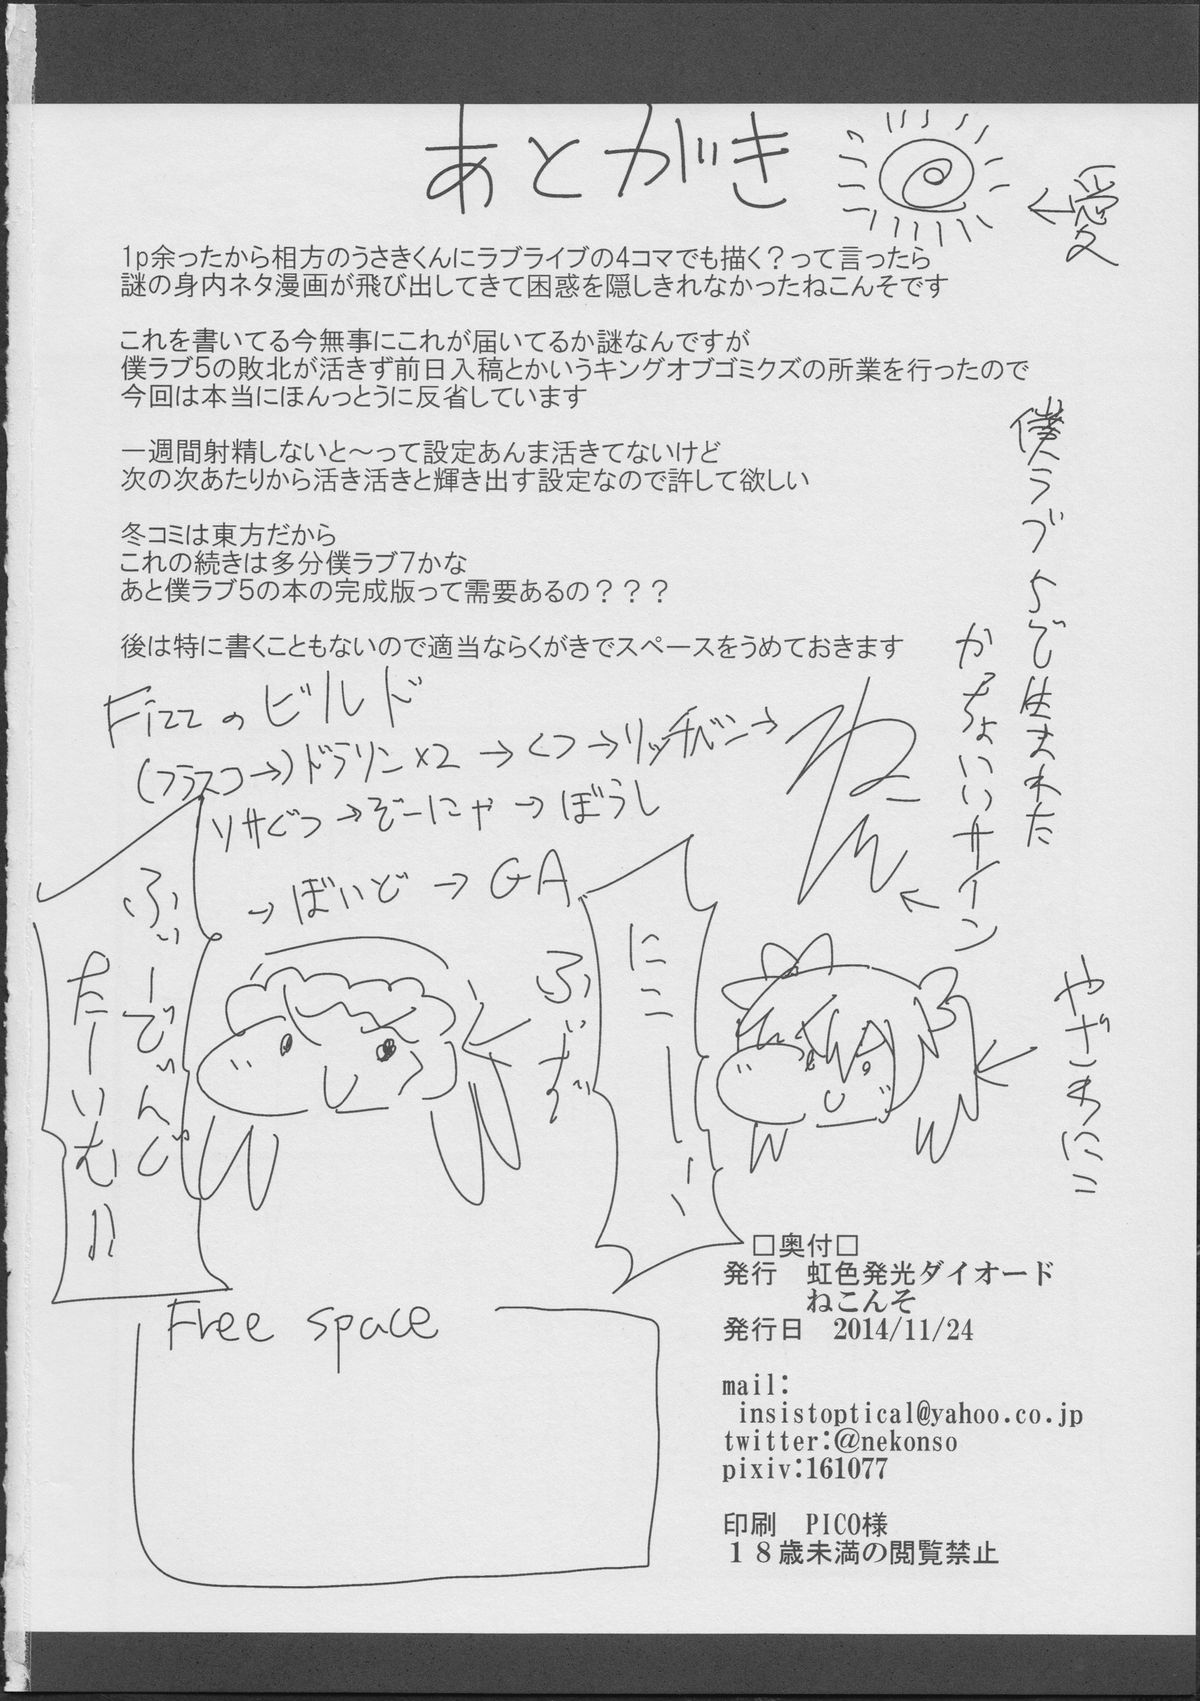 あとがき
←愛
1p余ったから相方のうさきくんにラブライブの4コマでも描く？って言ったら
謎の身内ネタ漫画が飛び出してきて困惑を隠しきれなかったねこんそです
これを書いてる今無事にこれが届いてるか謎なんですが
僕ラブ5の敗北が活きず前日入稿とかいうキングオブゴミクズの所業を行ったので
今回は本当にほんっとうに反省しています
一週間射精しないと～って設定あんま活きてないけど
次の次あたりから活き活きと輝き出す設定なので許して欲しい
冬コミは東方だから
これの続きは多分僕ラブ7かな
あと僕ラブ5の本の完成版って需要あるの？？？
後は特に書くこともないので適当ならくがきでスペースをうめておきます
僕ラブ5で生まれた
かっちょいいサイン
←
ねん
Fizzのビルド
(フラスコ→)ドラリン×2→くつ→リッチベン→
ソサぐつ→ぞーにゃ→ぼうし
→ぼいど→GA
ふぃーでぃんぐ
たーいむ!!
ふぃず
にこーーー
やざわにこ
Free space
□奥付□
発行　虹色発光ダイオード
ねこんそ
発行日　2014/11/24
mail:
insistoptical@yahoo.co.jp
twitter:@nekonso
pixiv:161077
印刷　PICO様
１８歳未満の閲覧禁止